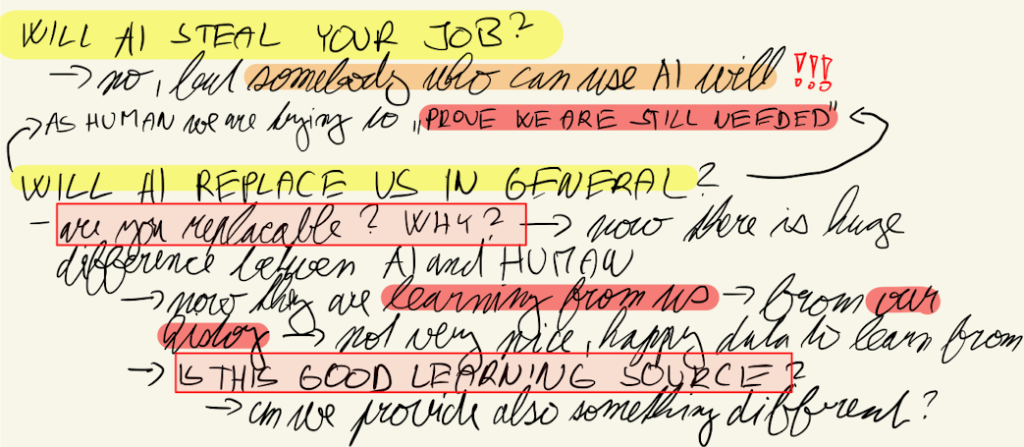 WILL AI STEAL YOUR JOB?
→ no, but somebody who can use AI will !!!
→ AS HUMAN we are trying to „PROVE WE ARE STILL NEEDED"
WILL AI REPLACE US IN GENERAL?
- are you replacable? WHY? → now there is huge
difference between AI and HUMAN
→ now they are learning from us → from our
history → not very nice, happy data to learn from
→ IS THIS GOOD LEARNING SOURCE?
→ can we provide also something different?